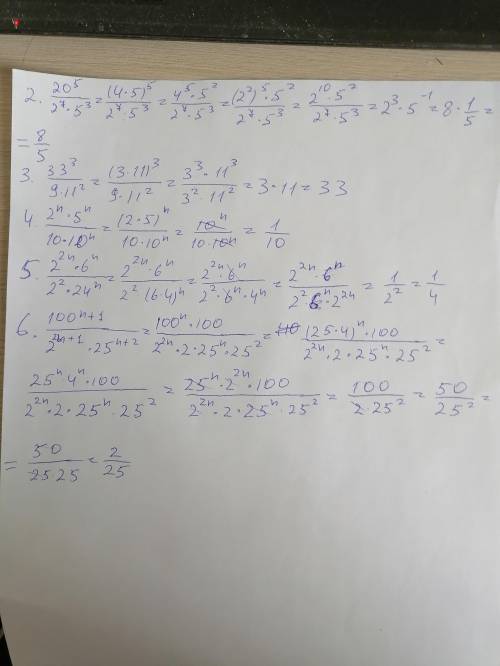 2. 20⁵/(2⁷·5³) = (4·5)⁵/(2⁷·5³) = (4⁵·5²)/(2⁷·5³) = ((2²)⁵·5²)/(2⁷·5³) = (2¹⁰·5²)/(2⁷·5³) = 2³·5⁻¹ = 8·1/5 =
= 8/5
3. 33³/(9·11²) = (3·11)³/(9·11²) = (3³·11³)/(3²·11²) = 3·11 = 33
4. (2ⁿ·5ⁿ)/(10·10ⁿ) = (2·5)ⁿ/(10·10ⁿ) = 10ⁿ/(10·10ⁿ) = 1/10
5. (2²ⁿ·6ⁿ)/(2²·24ⁿ) = (2²ⁿ·6ⁿ)/(2²·(6·4)ⁿ) = (2²ⁿ·6ⁿ)/(2²·6ⁿ·4ⁿ) = (2²ⁿ·6ⁿ)/(2²·6ⁿ·2²ⁿ) = 1/2² = 1/4
6. 100ⁿ⁺¹/(2²ⁿ⁺¹·25ⁿ⁺²) = (100ⁿ·100)/(2²ⁿ·2·25ⁿ·25²) = ((25·4)ⁿ·100)/(2²ⁿ·2·25ⁿ·25²) =
(25ⁿ·4ⁿ·100)/(2²ⁿ·2·25ⁿ·25²) = (25ⁿ·2²ⁿ·100)/(2²ⁿ·2·25ⁿ·25²) = 100/(2·25²) = 50/25² =
= 50/(25·25) = 2/25